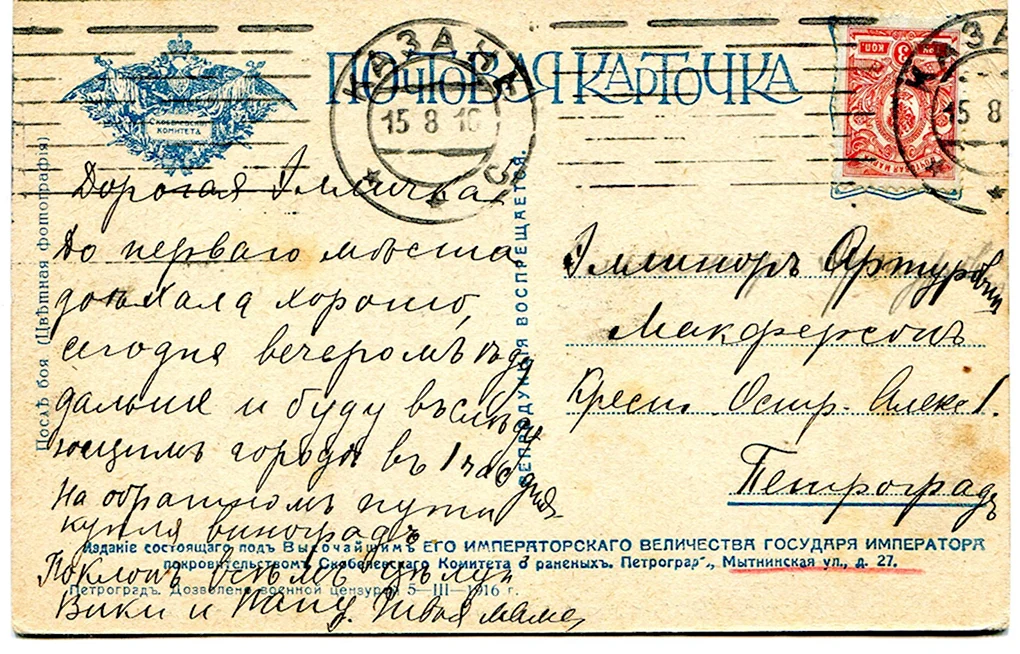 ПОЧТОВАЯ КАРТОЧКА
СКОБЕЛЕВСКІЙ
КОМИТЕТА
КАЗАЧЬ
15 8 16
3
КОП.
ПОЧТОВАЯ МАРКА
15 8
Послѣ боя (Цвѣтная фотографія)
РЕПРОДУКЦІЯ ВОСПРЕЩАЕТСЯ.
Дорогая Эллиночка
До перваго мѣста
доѣхала хорошо,
сегодня вечеромъ ѣду
дальше и буду въ слѣду
ющимъ городѣ въ 1 час дня
На обратномъ пути
куплю виноградъ
Поклонъ всѣмъ цѣлуй
Вики и Папу. Твоя мама
Эллиноръ Артуровнѣ
Макферсонъ
Крест. Остр. Алекс 1.
Петроградъ
Изданіе состоящаго подъ Высочайшимъ ЕГО ИМПЕРАТОРСКАГО ВЕЛИЧЕСТВА ГОСУДАРЯ ИМПЕРАТОРА
покровительствомъ Скобелевскаго Комитета о раненыхъ. Петроградъ, Мытнинская ул., д. 27.
Петроградъ. Дозволено военной цензурой 5—III—1916 г.